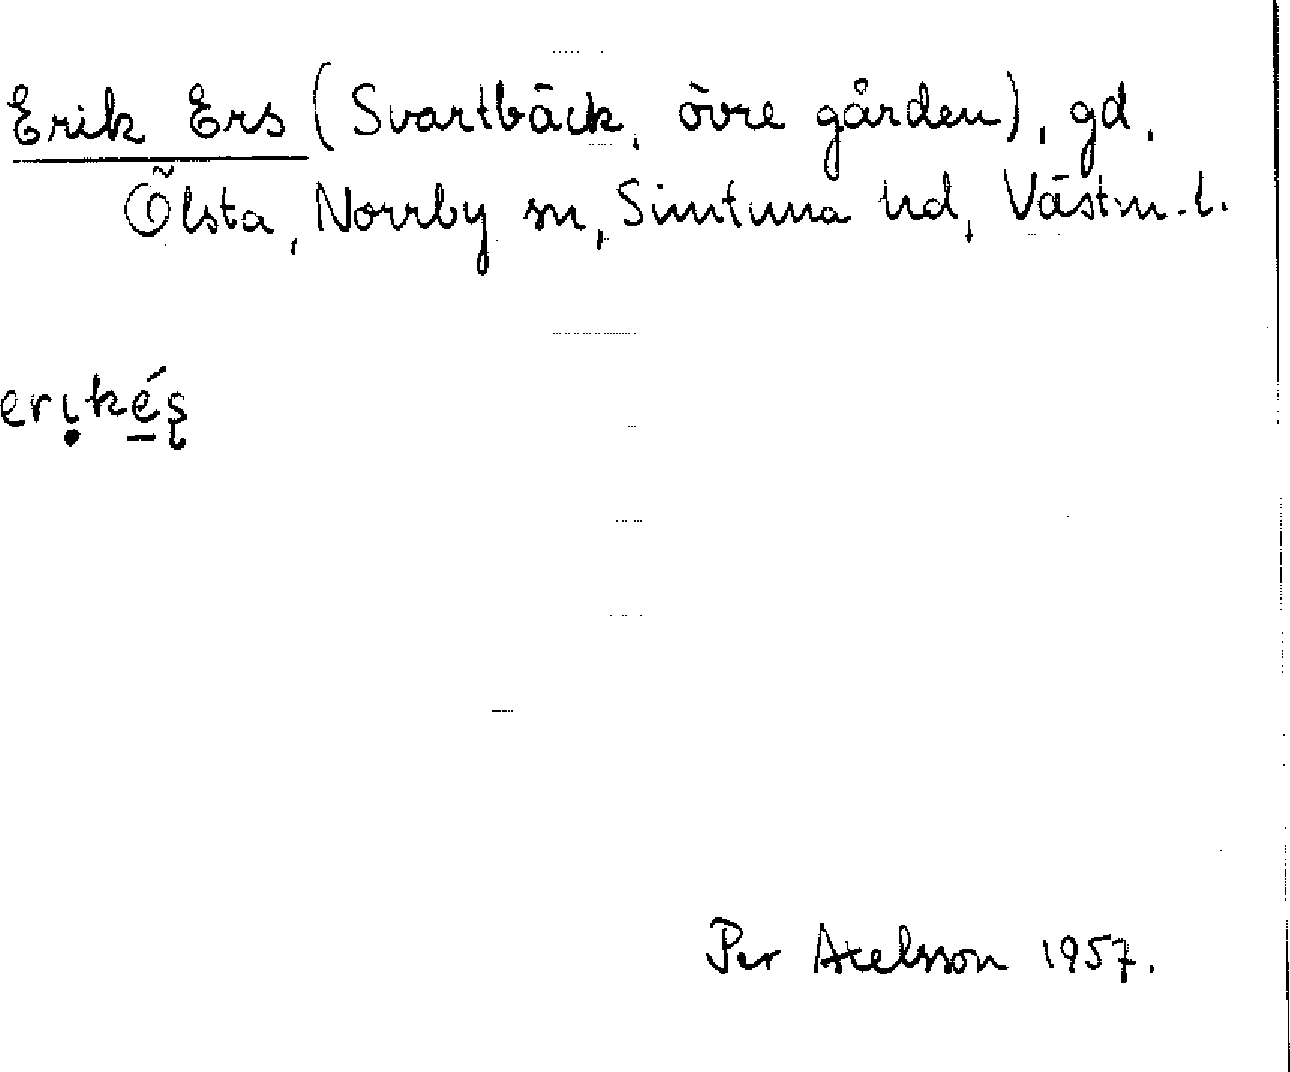 Erik Ers (Svartbäck, övre gården), gd,
Ölsta, Norrby sn, Simtuna hd, Västm. l.
erịké̱ş
Per Axelsson 1957.